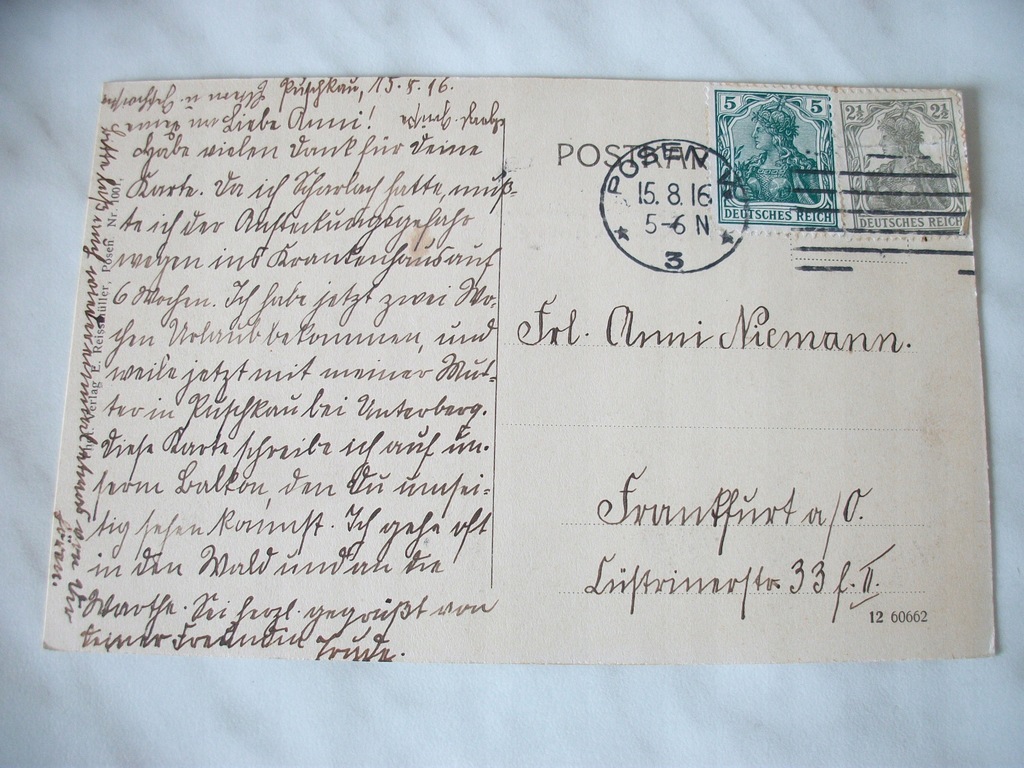 Puschkau, 15.8.16.
Liebe Anni!
Habe vielen Dank für Deine
Karte. Da ich Scharlach hatte, muß-
te ich der Ansteckungsgefahr
wegen ins Krankenhaus auf
6 Wochen. Ich habe jetzt zwei Wo-
chen Urlaub bekommen, und
weile jetzt mit meiner Mut-
ter in Puschkau bei Unterberg.
Diese Karte schreibe ich auf un-
serm Balkon, den Du umsei-
tig sehen kannst. Ich gehe oft
in den Wald und an die
Warthe. Sei herzl. gegrüßt von
Deiner Freundin Trude.
Bitte laß mich wieder einmal etwas von Dir
hören.
Verlag E. Reissmüller, Posen. Nr. 1001.
POSTKARTE
POSEN
15.8.16
5-6 N
3
5 5
DEUTSCHES REICH
2½ 2½
DEUTSCHES REICH
Frl. Anni Niemann.
Frankfurt a/O.
Cüstrinerstr. 33 f. II.
12 60662